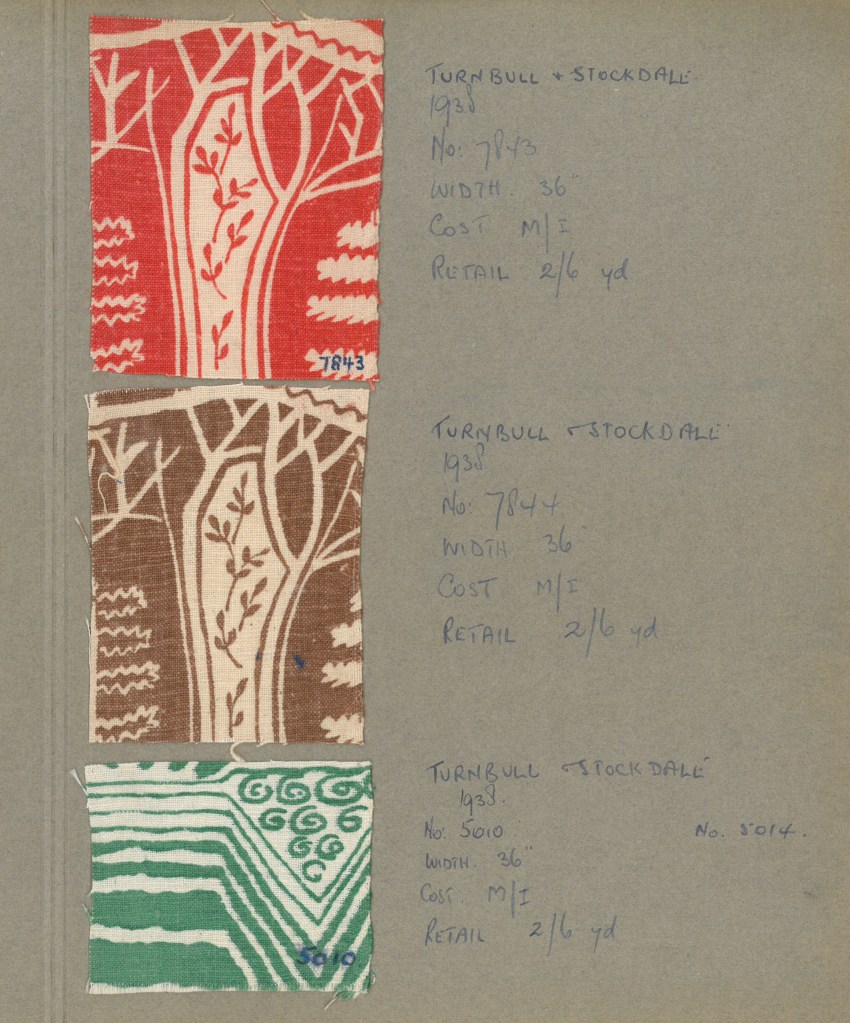 TURNBULL + STOCKDALE
1938
No: 7843
WIDTH. 36"
COST M/I
RETAIL 2/6 yd
7843
TURNBULL + STOCKDALE
1938
No: 7844
WIDTH 36"
COST M/I
RETAIL 2/6 yd
TURNBULL + STOCKDALE
1938.
No: 5010 No. 5014.
WIDTH. 36"
COST. M/I
RETAIL 2/6 yd
5010